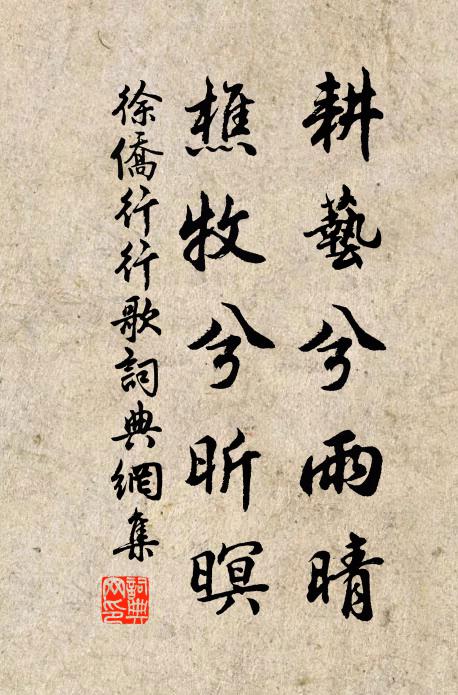 耕藝兮雨晴
樵牧兮昕暝
徐僑行行歌詞典網集
詞典網印